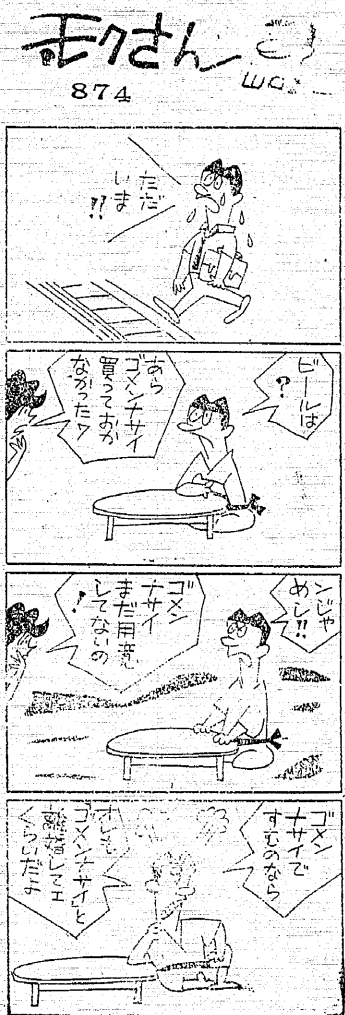 モクさん
874
ただ
いま
!!
ビールは
?
あら
ゴメンナサイ
買っておか
なかったワ
ンじゃ
めし!!
ゴメン
ナサイ
まだ用意
してないの
!
ゴメン
ナサイで
すむのなら
オレも
「ゴメンナサイ」と
辞職してェ
くらいだよ